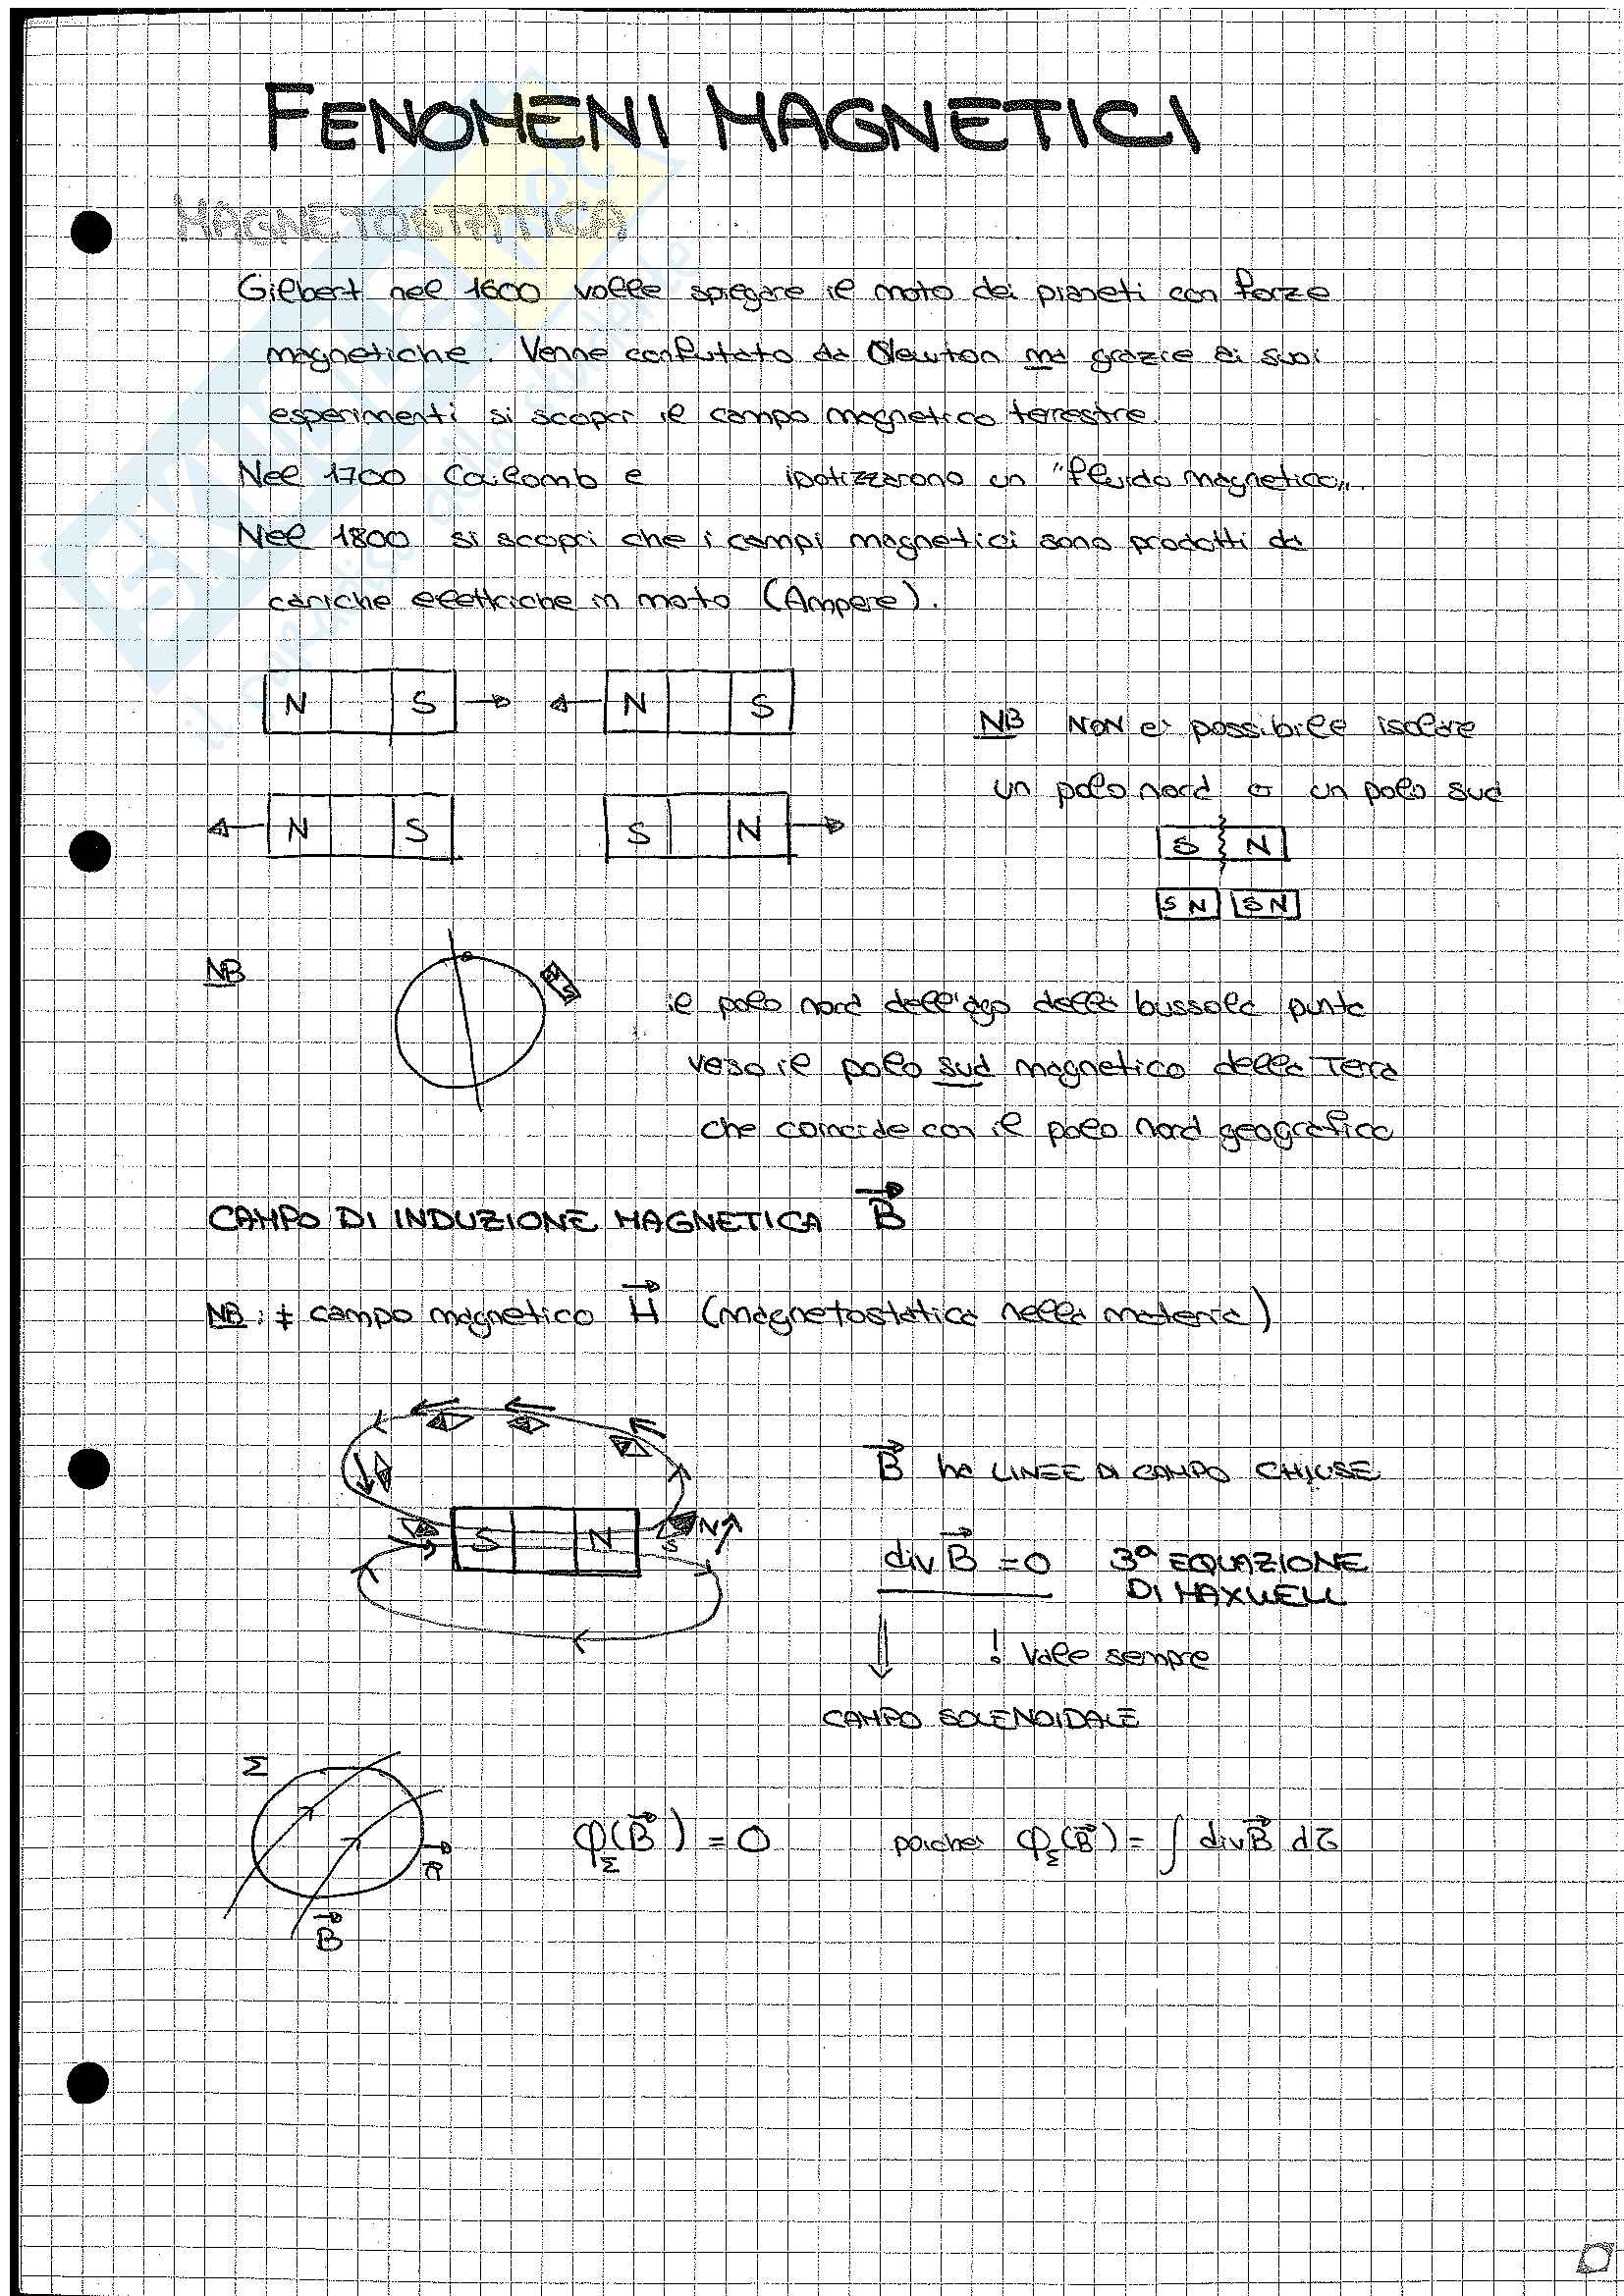 FENOMENI MAGNETICI
MAGNETOSTATICA
Gilbert nel 1600 volle spiegare il moto dei pianeti con forze
magnetiche. Venne confutato da Newton ma grazie ai suoi
esperimenti si scoprì il campo magnetico terrestre.
Nel 1700 Coulomb e ipotizzarono un "fluido magnetico".
Nel 1800 si scoprì che i campi magnetici sono prodotti da
cariche elettriche in moto (Ampere).
N S → ← N S
NB NON è possibile isolare
un polo nord o un polo sud
← N S S N →
S N
S N S N
NB
N S
il polo nord dell'ago della bussola punta
verso il polo sud magnetico della Terra
che coincide con il polo nord geografico
CAMPO DI INDUZIONE MAGNETICA B⃗
NB: ≠ campo magnetico H⃗ (magnetostatica nella materia)
B⃗ ha LINEE DI CAMPO CHIUSE
S N S N
div B⃗ = 0 3ª EQUAZIONE
DI MAXWELL
⇓ ! Vale sempre
CAMPO SOLENOIDALE
Σ
φ_Σ(B⃗) = 0 poiché φ_Σ(B⃗) = ∫ div B⃗ dτ
n⃗
B⃗